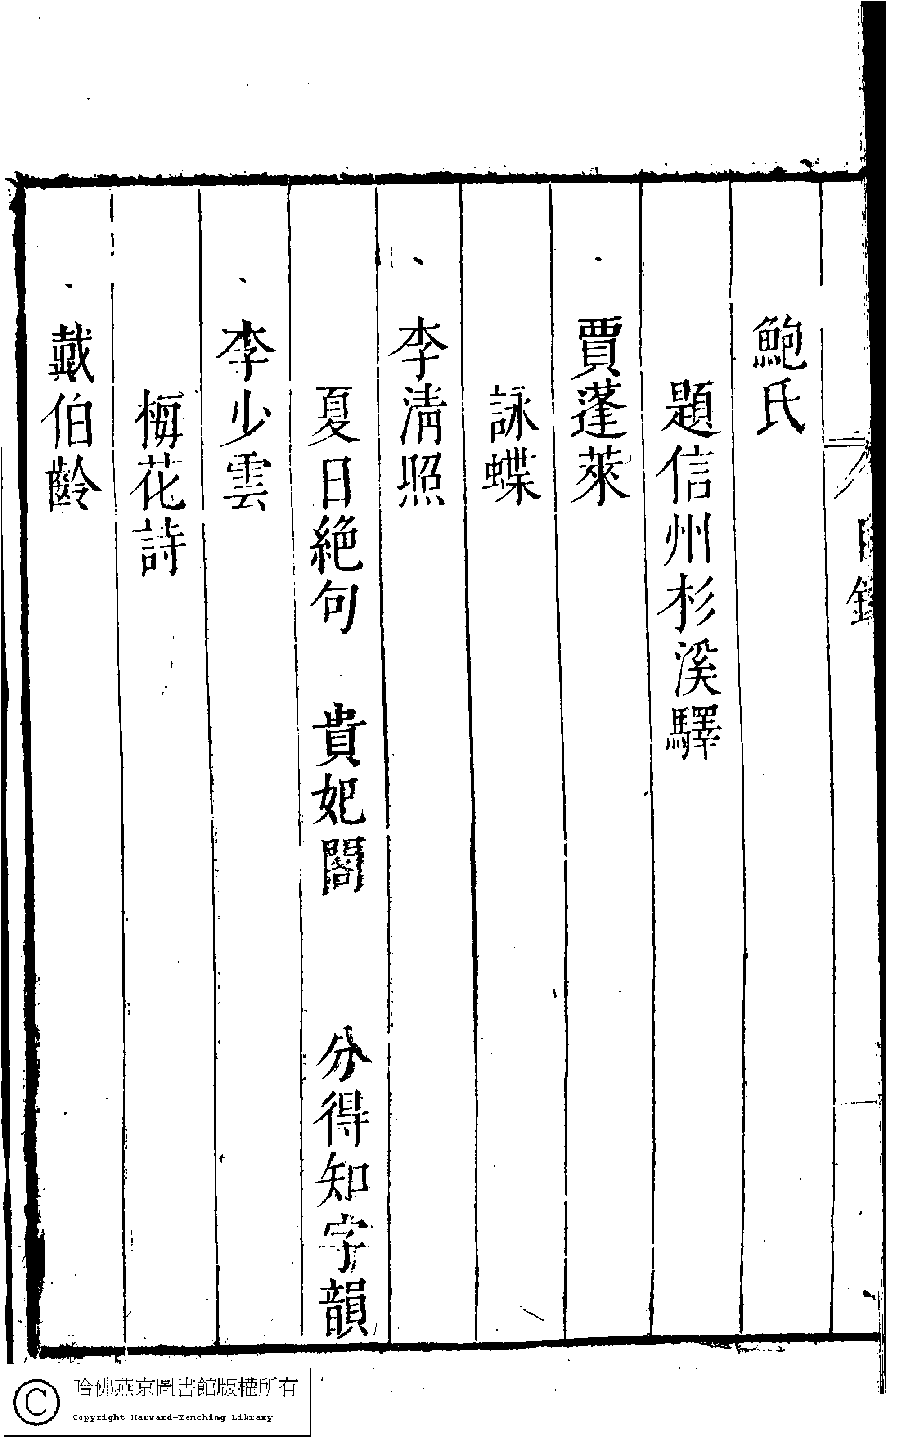 目錄
鮑氏
題信州杉溪驛
賈蓬萊
詠蝶
李清照
夏日絕句 貴妃閣 分得知字韻
李少雲
梅花詩
戴伯齡
哈佛燕京圖書館版權所有
Copyright Harvard-Yenching Library